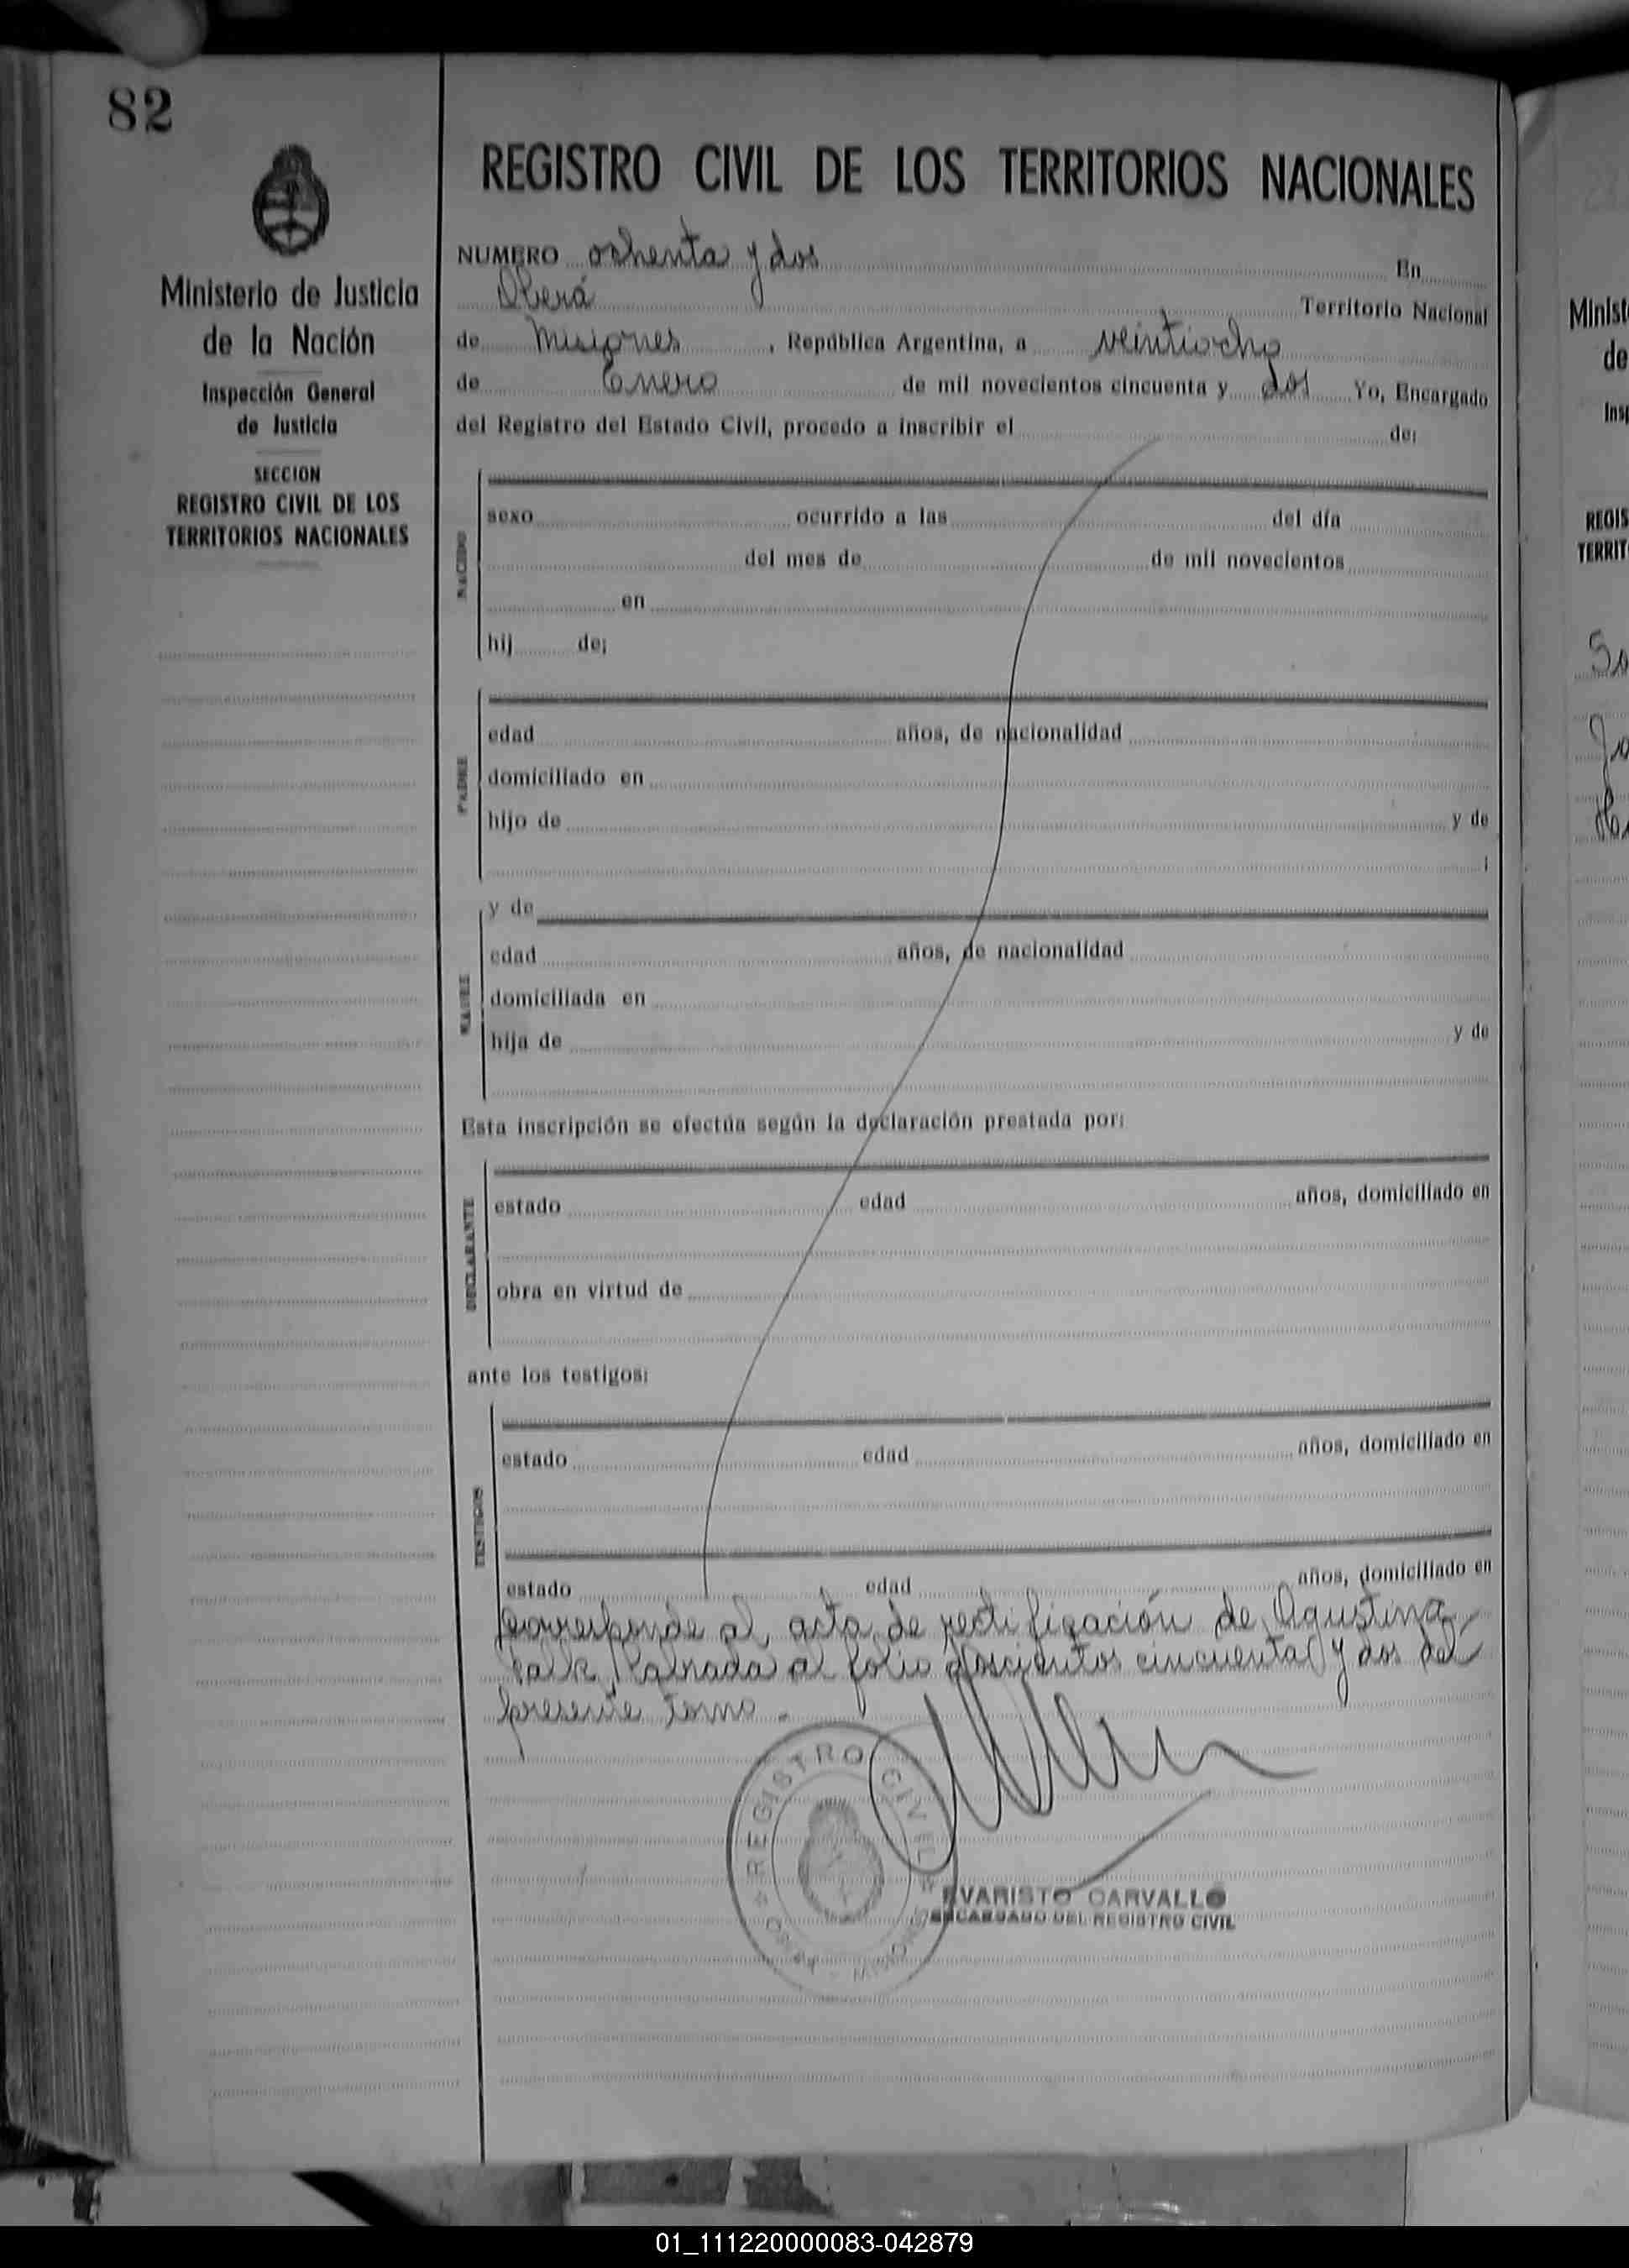 82
Ministerio de Justicia
de la Nación
Inspección General
de Justicia
SECCION
REGISTRO CIVIL DE LOS
TERRITORIOS NACIONALES
REGISTRO CIVIL DE LOS TERRITORIOS NACIONALES
NUMERO ochenta y dos En
Oberá Territorio Nacional
de Misiones, República Argentina, a veintiocho
de Enero de mil novecientos cincuenta y dos Yo, Encargado
del Registro del Estado Civil, procedo a inscribir el de:
NACIDO
sexo ocurrido a las del día
del mes de de mil novecientos
en
hij de;
PADRE
edad años, de nacionalidad
domiciliado en
hijo de y de
;
MADRE
y de
edad años, de nacionalidad
domiciliada en
hija de y de
Esta inscripción se efectúa según la declaración prestada por:
DECLARANTE
estado edad años, domiciliado en
obra en virtud de
ante los testigos:
TESTIGOS
estado edad años, domiciliado en
estado edad años, domiciliado en
Corresponde al acta de rectificación de Agustina
al folio doscientos cincuenta y dos del
presente tomo.
REGISTRO CIVIL
MISIONES
EVARISTO CARVALLO
ENCARGADO DEL REGISTRO CIVIL
Minist
de
Ins
REGIS
TERRIT
01_111220000083-042879